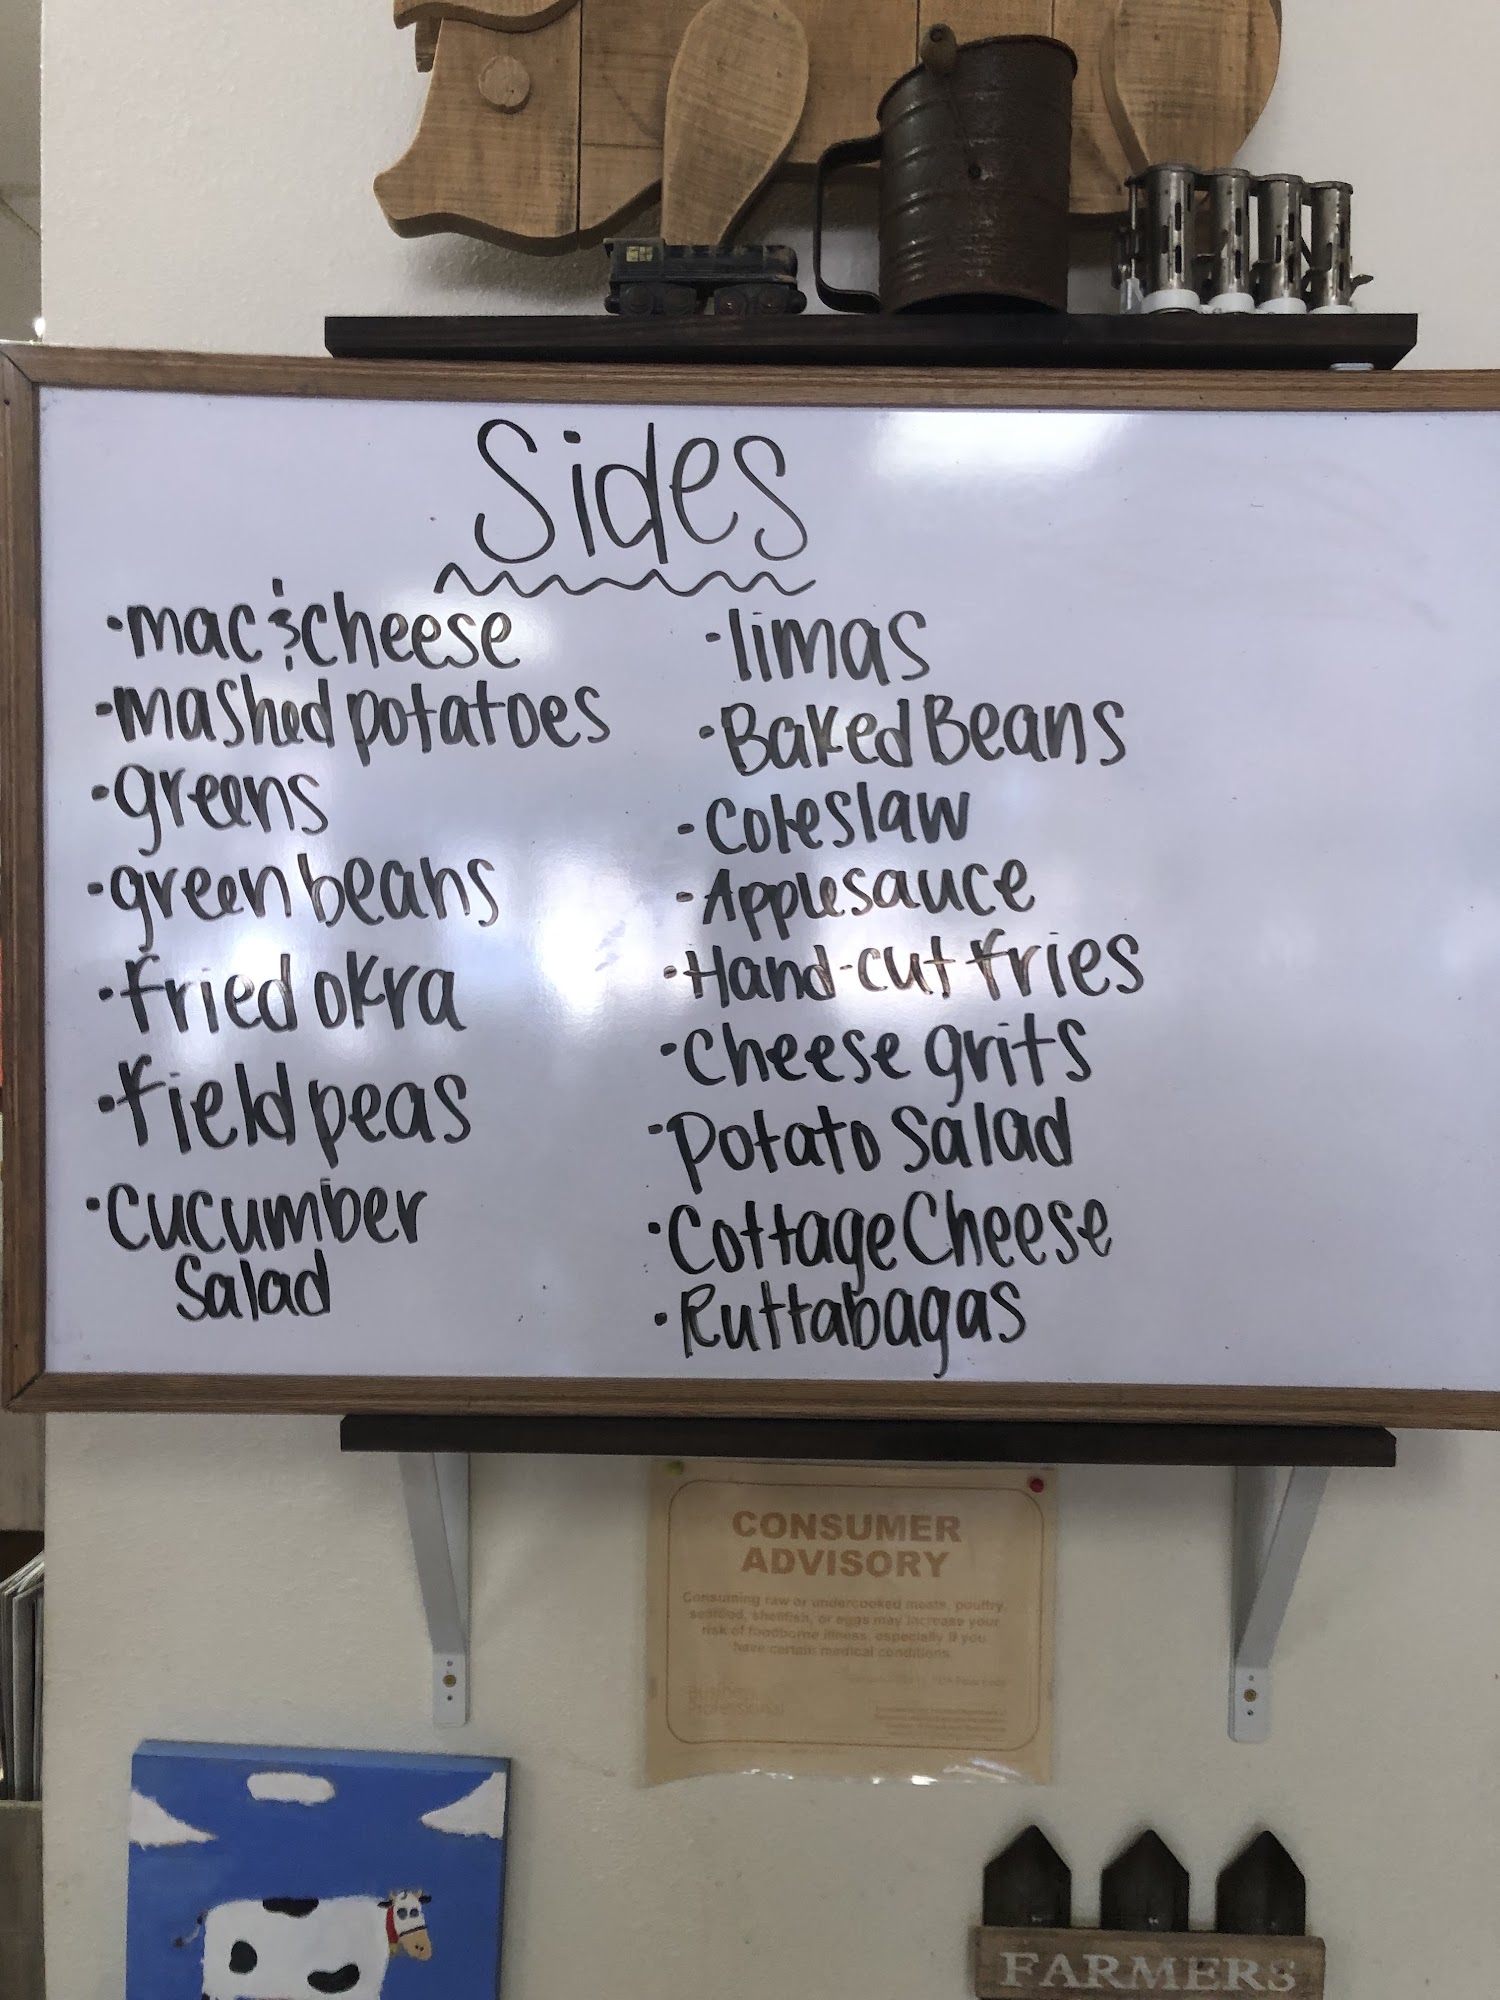 Sides
·mac & cheese
·mashed potatoes
·greens
·green beans
·fried okra
·field peas
·cucumber
salad
·limas
·Baked Beans
·Coleslaw
·Applesauce
·Hand-cut fries
·Cheese grits
·Potato Salad
·Cottage Cheese
·Ruttabagas
CONSUMER
ADVISORY
Consuming raw or undercooked meats, poultry,
seafood, shellfish, or eggs may increase your
risk of foodborne illness, especially if you
have certain medical conditions.
FARMERS